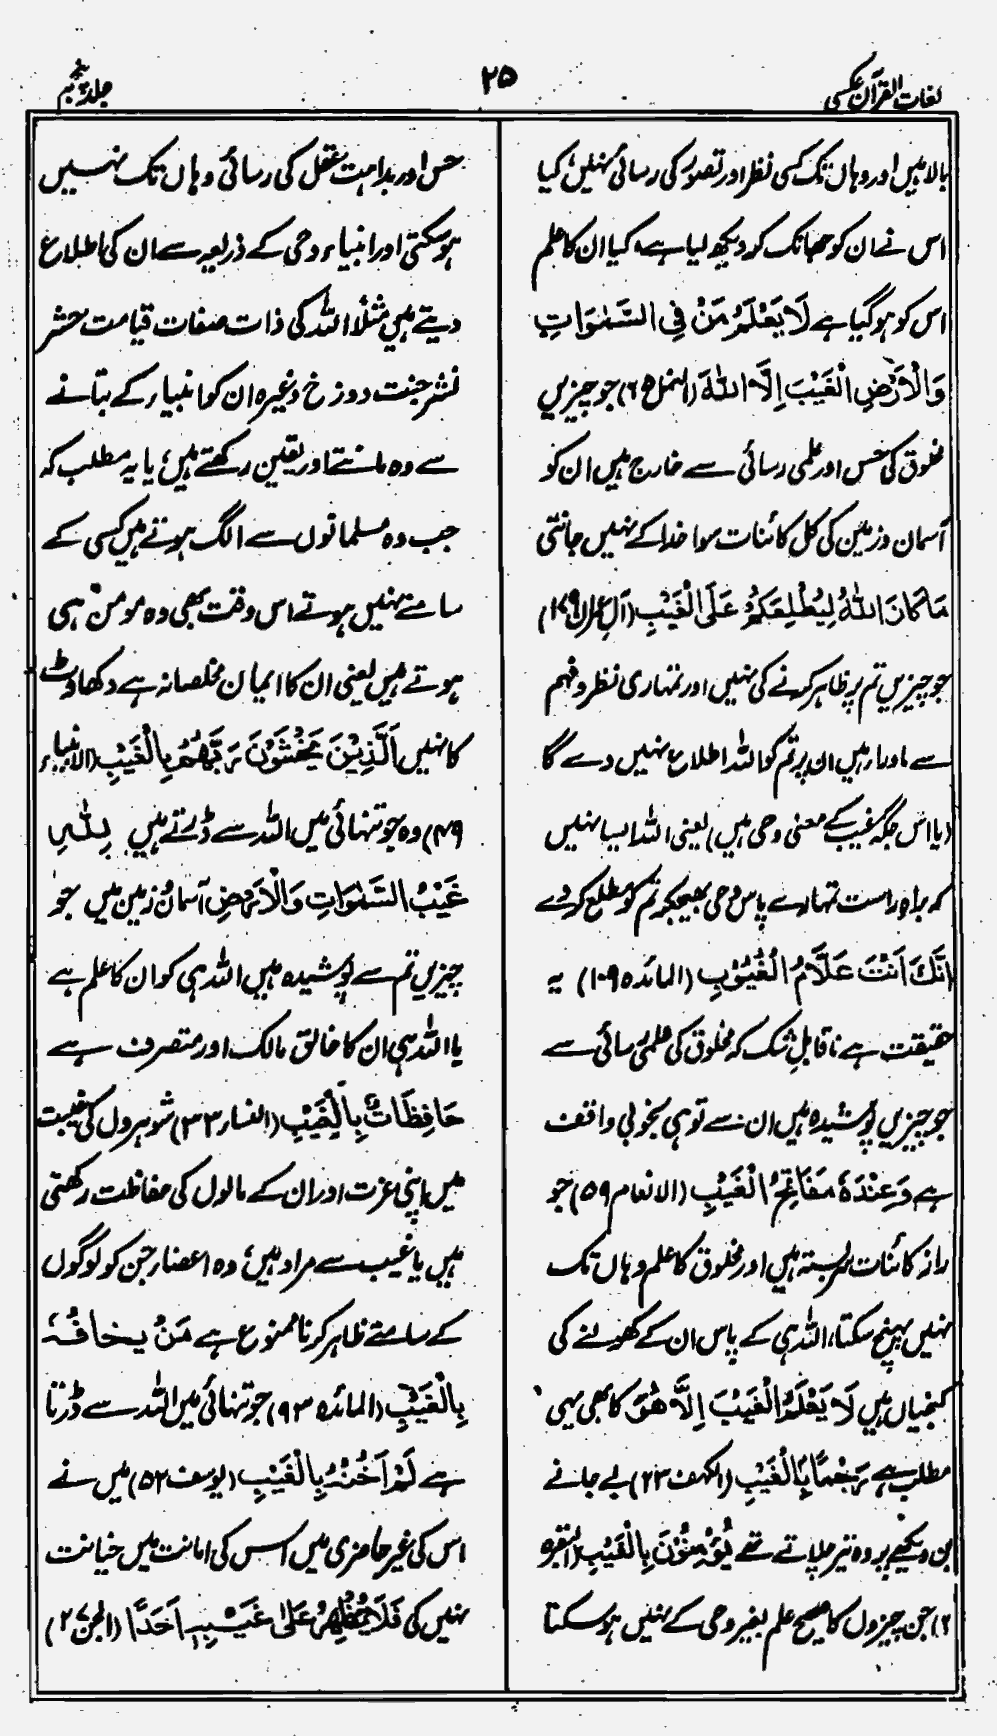 لغات القرآن عکسی
۲۵
جلد پنجم
بالا ہیں اور وہاں تک کسی نظر اور تصور کی رسائی نہیں، کیا
اس نے ان کو جھانک کر دیکھ لیا ہے، کیا ان کا علم
اس کو ہو گیا ہے لَا یَعْلَمُ مَنْ فِی السَّمٰوَاتِ
وَالْاَرْضِ الْغَیْبَ اِلَّا اللّٰهَ (النمل ۶۵) جو چیزیں
مخلوق کی حس اور علمی رسائی سے خارج ہیں ان کو
آسمان و زمین کی کل کائنات سوا خدا کے نہیں جانتی
مَا کَانَ اللّٰهُ لِیُطْلِعَکُمْ عَلَی الْغَیْبِ (آل عمران ۱۷۹)
جو چیزیں تم پر ظاہر کرنے کی نہیں اور تمہاری نظر و فہم
سے ماورا ہیں ان پر تم کو اللہ اطلاع نہیں دے گا
(یا اس جگہ غیب کے معنی وحی ہیں) یعنی اللہ ایسا نہیں
کہ براہ راست تمہارے پاس وحی بھیجکر تم کو مطلع کر دے
اِنَّکَ اَنْتَ عَلَّامُ الْغُیُوْبِ (المائدہ ۱۰۹) یہ
حقیقت ہے ناقابل شک کہ مخلوق کی علمی رسائی سے
جو چیزیں پوشیدہ ہیں ان سے تو ہی بخوبی واقف
ہے وَعِنْدَهٗ مَفَاتِحُ الْغَیْبِ (الانعام ۵۹) جو
راز کائنات سربستہ ہیں اور مخلوق کا علم وہاں تک
نہیں پہنچ سکتا، اللہ ہی کے پاس ان کے کھولنے کی
کنجیاں ہیں لَا یَعْلَمُ الْغَیْبَ اِلَّا هُوَ کا بھی یہی
مطلب ہے رَجْمًا بِالْغَیْبِ (الکہف ۲۳) بے جانے
بن دیکھے پر وہ تیر چلاتے تھے یُؤْمِنُوْنَ بِالْغَیْبِ (البقرہ
۲) جن چیزوں کا صحیح علم بغیر وحی کے نہیں ہو سکتا
حس اور بداہت عقل کی رسائی وہاں تک نہیں
ہو سکتی اور انبیاء وحی کے ذریعہ سے ان کی اطلاع
دیتے ہیں مثلاً اللہ کی ذات صفات قیامت حشر
نشر جنت دوزخ وغیرہ ان کو انبیاء کے بتانے
سے وہ مانتے اور یقین رکھتے ہیں، یا یہ مطلب کہ
جب وہ مسلمانوں سے الگ ہوتے ہیں کسی کے
سامنے نہیں ہوتے اس وقت بھی وہ مومن ہی
ہوتے ہیں یعنی ان کا ایمان مخلصانہ ہے دکھاوٹ
کا نہیں اَلَّذِیْنَ یَخْشَوْنَ رَبَّهُمْ بِالْغَیْبِ (الانبیاء
۴۹) وہ جو تنہائی میں اللہ سے ڈرتے ہیں۔ لِلّٰهِ
غَیْبُ السَّمٰوَاتِ وَالْاَرْضِ آسمان زمین میں جو
چیزیں تم سے پوشیدہ ہیں اللہ ہی کو ان کا علم ہے
یا اللہ ہی ان کا خالق مالک اور متصرف ہے
حَافِظَاتٌ بِالْغَیْبِ (النساء ۳۳) شوہروں کی غیبت
میں اپنی عزت اور ان کے مالوں کی حفاظت رکھتی
ہیں یا غیب سے مراد ہیں، وہ اعضاء جن کو لوگوں
کے سامنے ظاہر کرنا ممنوع ہے مَنْ یَخَافُهٗ
بِالْغَیْبِ (المائدہ ۹۳) جو تنہائی میں اللہ سے ڈرتا
ہے لَمْ اَخُنْهُ بِالْغَیْبِ (یوسف ۵۲) میں نے
اس کی غیر حاضری میں اس کی امانت میں خیانت
نہیں کی فَلَا یُظْهِرُ عَلٰی غَیْبِهٖ اَحَدًا (الجن ۲۷)